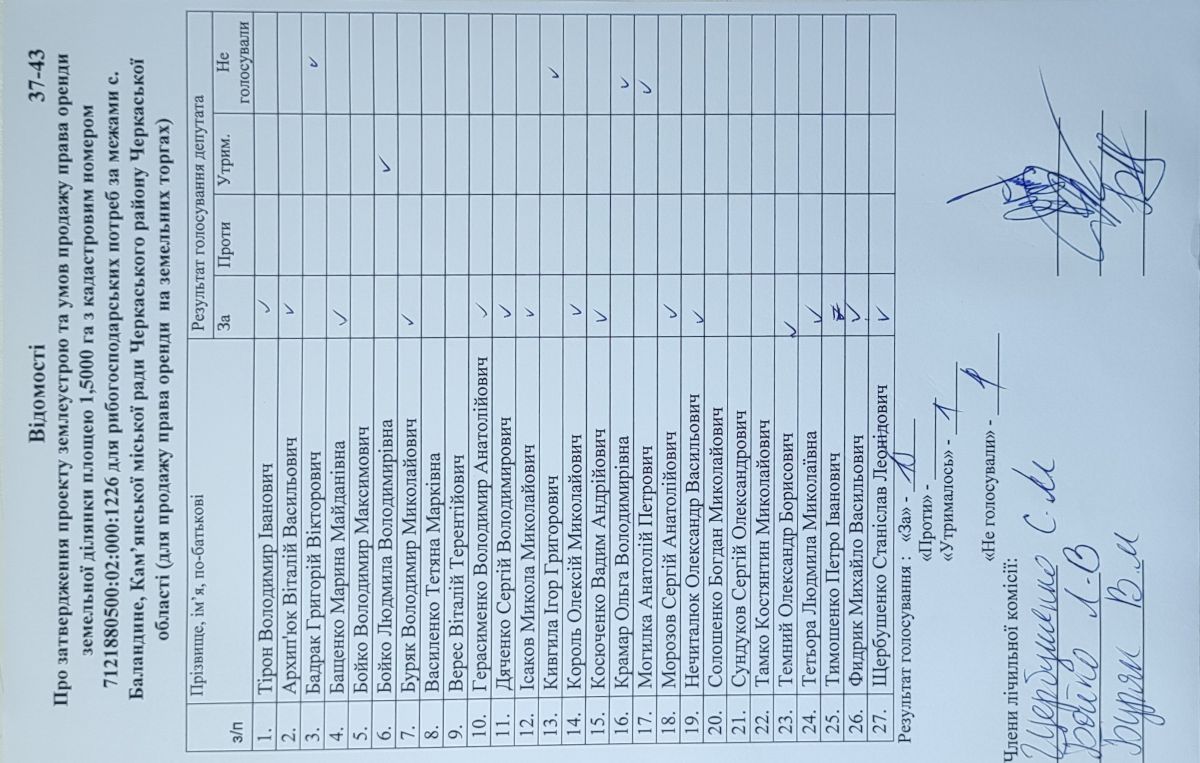 Відомості 37-43
Про затвердження проекту землеустрою та умов продажу права оренди
земельної ділянки площею 1,5000 га з кадастровим номером
7121880500:02:000:1226 для рибогосподарських потреб за межами с.
Баландине, Кам’янської міської ради Черкаського району Черкаської
області (для продажу права оренди на земельних торгах)
з/п Прізвище, ім’я, по-батькові Результат голосування депутата
За Проти Утрим. Не голосували
1. Тірон Володимир Іванович ✓
2. Архип'юк Віталій Васильович ✓
3. Бадрак Григорій Вікторович ✓
4. Бащенко Марина Майданівна ✓
5. Бойко Володимир Максимович
6. Бойко Людмила Володимирівна ✓
7. Буряк Володимир Миколайович ✓
8. Василенко Тетяна Марківна
9. Верес Віталій Терентійович
10. Герасименко Володимир Анатолійович ✓
11. Дяченко Сергій Володимирович ✓
12. Ісаков Микола Миколайович ✓
13. Квітила Ігор Григорович ✓
14. Король Олексій Миколайович ✓
15. Косюченко Вадим Андрійович ✓
16. Крамар Ольга Володимирівна ✓
17. Могилка Анатолій Петрович ✓
18. Морозов Сергій Анатолійович ✓
19. Нечиталюк Олександр Васильович ✓
20. Солошенко Богдан Миколайович
21. Сундуков Сергій Олександрович
22. Тамко Костянтин Миколайович
23. Темний Олександр Борисович ✓
24. Тетьора Людмила Миколаївна ✓
25. Тимошенко Петро Іванович
26. Фидрик Михайло Васильович ✓
27. Щербушенко Станіслав Леонідович ✓
Результат голосування : «За» -
«Проти» -
«Утрималось» - 1
«Не голосували» -
Члени лічильної комісії:
Щербушенко С.
Бойко Л.В
Буряк В.М